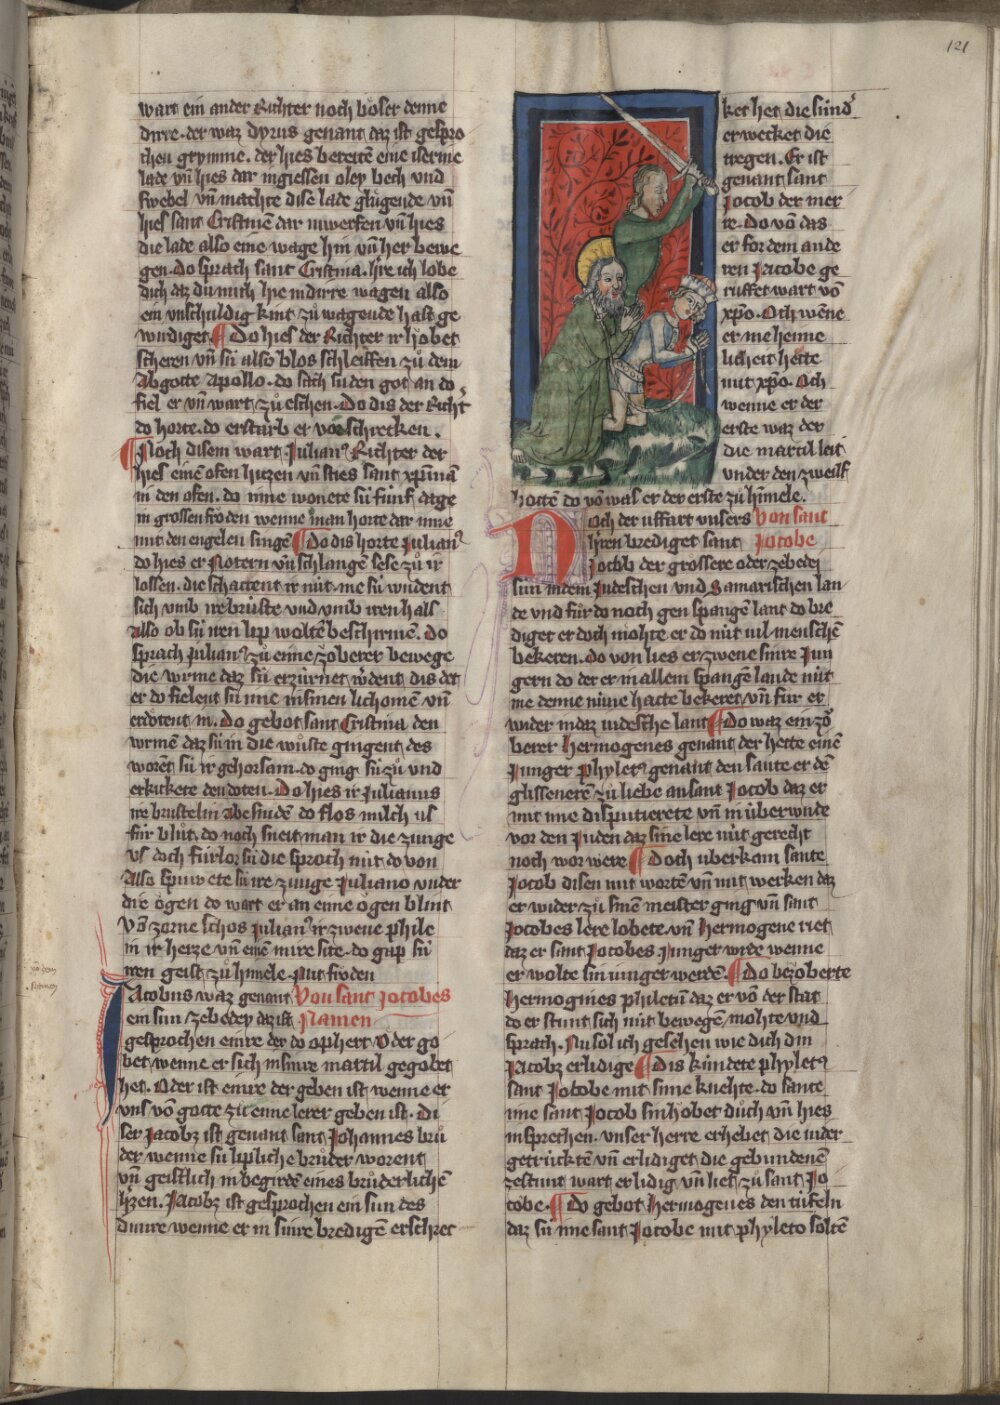 121
wart ein ander Richter noch böser denne
dirre · der waz dyrus genant daz ist gespro
chen grymme . der hies bereitē eine iserine
lade vn̄ hies dar ingiessen oley bech und
swebel vn̄ machte dise lade glügende vn̄
hies sant Cristinē dar inwerfen vn̄ hies
die lade also eine wage hin vn̄ her bewe
gen · do sprach sant Cristina · h̓re ich lobe
dich daz du mich hie in dirre wagen also
ein vnschuldig kint zü wagende hast ge
wirdiget ¶ Do hies der Richter ir hŏbet
scheren vn̄ sü also blos schleiffen zü dem
Abgotte Apollo · do sach sü den got an do
fiel er vn̄ wart zů eschen · Do dis der Richt̓
do horte · do ersturb er vō schrecken .
¶ Noch disem wart Julian⁹ Richter der
hies einē ofen hitzen vn̄ sties sant xpīnā
in den ofen · do inne wonete sü fünf dage
in grossen froiden wenne man horte dar inne
mit den engelen singē ¶ Do dis horte Julian⁹
do hies er Notern vn̄ schlangē sese zů ir
lossen · die schattent ir nüt · me sü wudent
sich vmb ire brüste vnd vmb iren hals
also ob sü iren lip woltē beschirmē · Do
sprach Julian⁹ zů eime zŏberer bewege
die würme daz sü erzürnet w̓dent dis det
er do fielent sü ime in sinen lichomē vn̄
erdotent in · Do gebot sant Cristina den
wrmē daz sü in die wůste gingent des
worēt sü ir gehorsam · do ging sü zů und
erkickete den doten · Do hies ir Julianus
ire brustelin abe snidē do flos milch us
für blůt · do noch sneit man ir die zunge
vs doch fürlor sü die sproch nüt · do von
Also spuwete sü ire zunge Juliano vnder
die ŏgen do wart er an eime ŏgen blint
Vō zorne schos Julian⁹ ir zwene phile
in ir herze vn̄ einē in ire site · do gap sü
iren geist zů himele · Mit froiden
Iacobus waz genant Von sant Jocobes
ein sun zebedey daz ist Namen
gesprochen einre der do ophert Oder go
bet wenne er sich in sinre martil gegobet
het · Oder ist einre der geben ist wenne er
vns vō gotte zü eime lerer geben ist · Di
ser Jacobz ist genant sant Johannes brů
der wenne sü lipliche brüder worent
vn̄ geistlich in begirdē eines brüderlichē
h̓tzen . Jacobz ist gesprochen ein sun des
dunre wenne er in sinre bredigē erschrec
ket het die sünd̓
er wecket die
tregen . Er ist
genant sant
Jocob der mer
re · Do vō das
er for dem ande
ren Jacobe ge
ruffet wart vō
xp̄o · Och wēne
er me heinne
licheit hette
mit xp̄o · Och
wenne er der
erste waz der
die martil leit
vnder den zweilf
botten do vō was er der erste zů himele .
Noch der uffart vnsers Von sant
h̓ren brediget sant Jocobe
Jocob der grössere oder zebedei
sun in dem Judeschen vnd Samarischen lan
de vnd für do noch gen spangē lant do bre
diget er doch mohte er do nüt uil menschē
bekeren · do von lies er zwene sinre Jun
gern do der er in allem spangē lande nüt
me denne nüne hatte bekeret vn̄ für er
wider in daz iudesche lant ¶ Do waz ein zŏ
berer Hermogenes genant der hette einē
Junger Phylet⁹ genant den sante er dē
glissenerē zü liebe an sant Jocob daz er
mit ime disputierete vn̄ in überwnde
vor den Juden daz sine lere nüt gerecht
noch wor were ¶ Doch uberkam sante
Jocob disen mit wortē vn̄ mit werken daz
er wider zů sinē meister ging vn̄ sant
Jocobes lere lobete · vn̄ Hermogene riet
daz er sant Jocobes Junger wrde wenne
er wolte sin iunger werdē · ¶ Do bezŏberte
Hermogines philetū daz er vō der stat
do er stunt sich nüt bewegē mohte vnd
sprach · Nu sol ich gesehen wie dich din
Jacobz erlidige ¶ Dis kündete phylet⁹
sant Jocobe mit sime knehte · do sante
ime sant Jocob sin hŏbet důch vn̄ hies
in sprechen · vnser herre erhebet die nider
getrücktē vn̄ erlidiget die gebundenē
zestunt wart er lidig vn̄ lief zů sant Jo
cobe · ¶ Do gebot Hermogenes den tüfeln
daz sü ime sant Jocobe mit phyleto soltē